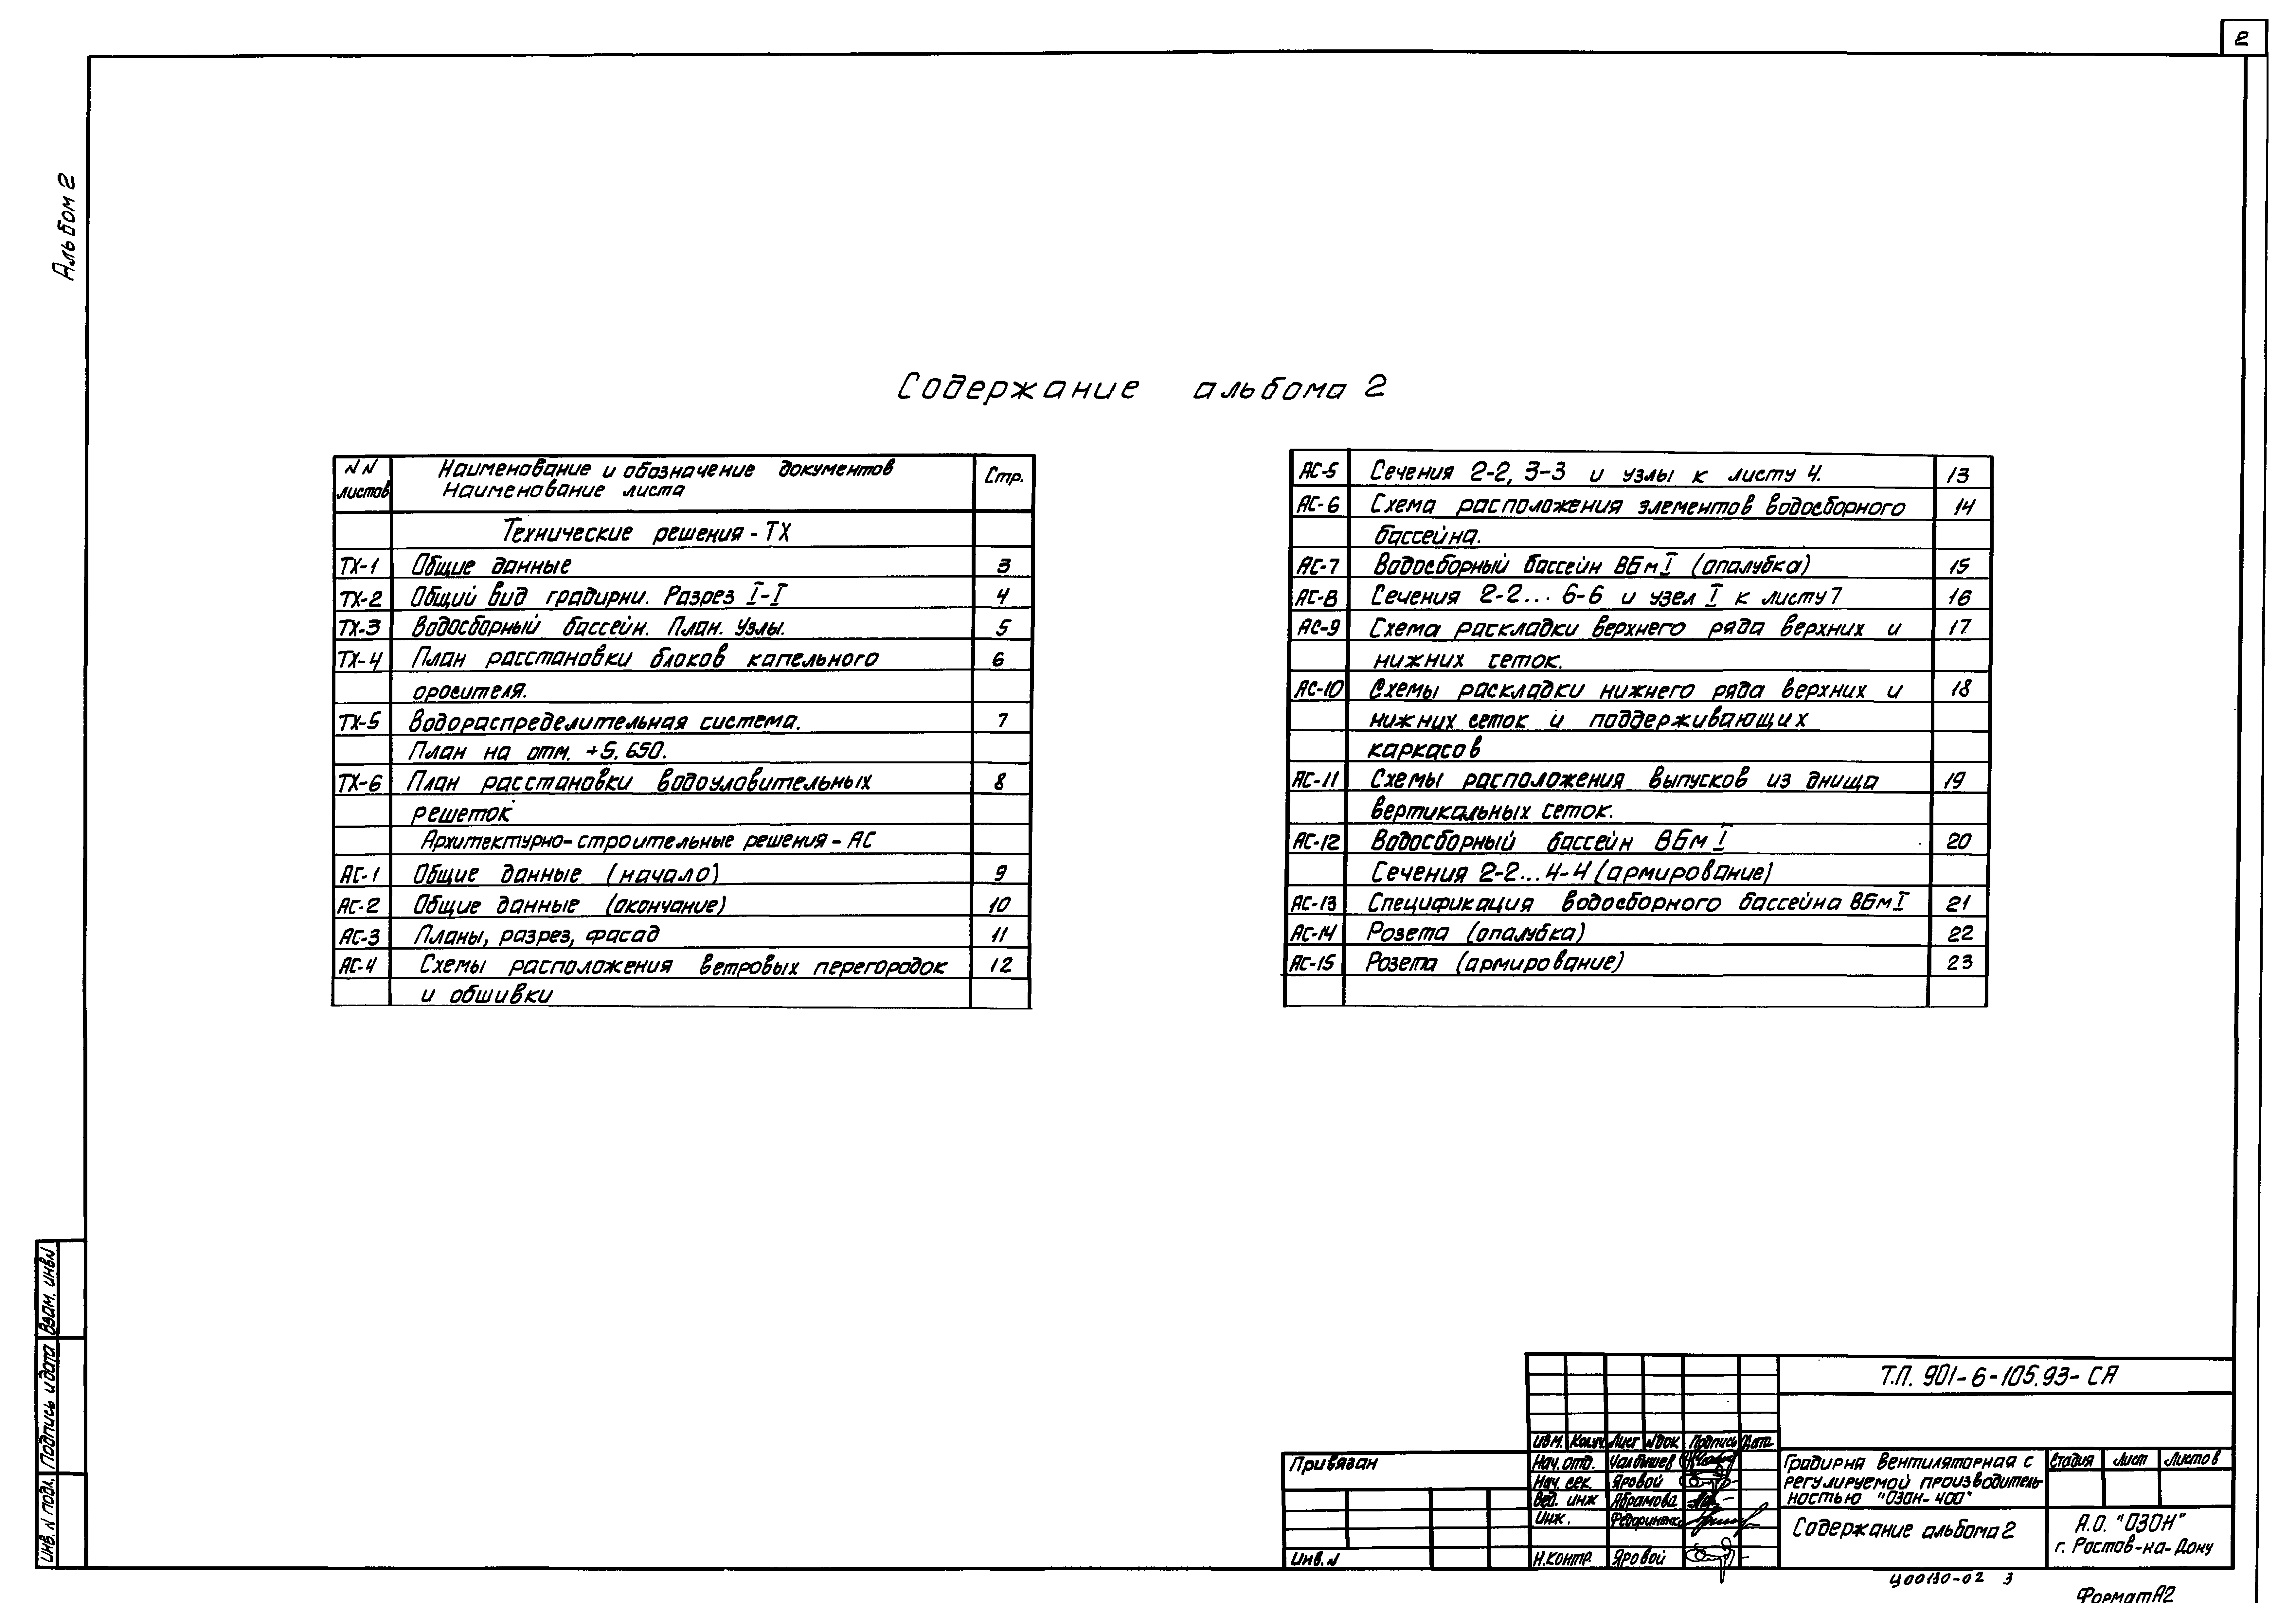 2
Альбом 2
Содержание альбома 2
NN листов Наименование и обозначение документов Наименование листа Стр.
Технические решения - ТХ
ТХ-1 Общие данные 3
ТХ-2 Общий вид градирни. Разрез I-I 4
ТХ-3 Водосборный бассейн. План. Узлы. 5
ТХ-4 План расстановки блоков капельного 6
оросителя.
ТХ-5 Водораспределительная система. 7
План на отм. +5.650.
ТХ-6 План расстановки водоуловительных 8
решеток
Архитектурно-строительные решения - АС
АС-1 Общие данные (начало) 9
АС-2 Общие данные (окончание) 10
АС-3 Планы, разрез, фасад 11
АС-4 Схемы расположения ветровых перегородок 12
и обшивки
АС-5 Сечения 2-2, 3-3 и узлы к листу 4. 13
АС-6 Схема расположения элементов водосборного 14
бассейна.
АС-7 Водосборный бассейн ВБм I (опалубка) 15
АС-8 Сечения 2-2... 6-6 и узел I к листу 7 16
АС-9 Схема раскладки верхнего ряда верхних и 17
нижних сеток.
АС-10 Схемы раскладки нижнего ряда верхних и 18
нижних сеток и поддерживающих
каркасов
АС-11 Схемы расположения выпусков из днища 19
вертикальных сеток.
АС-12 Водосборный бассейн ВБм I 20
Сечения 2-2...4-4 (армирование)
АС-13 Спецификация водосборного бассейна ВБм I 21
АС-14 Розета (опалубка) 22
АС-15 Розета (армирование) 23
Взам. инв.N
Подпись и дата
Инв. N подл.
Привязан
Инв. N
Изм. Кол.уч Лист Nдок Подпись Дата
Нач. отд.
Нач. сек. Яровой
Вед. инж Абрамова
Инж.
Н.контр. Яровой
Т.П. 901-6-105.93-СА
Градирня вентиляторная с
регулируемой производитель-
ностью "ОЗОН-400"
Стадия Лист Листов
Содержание альбома 2
А.О. "ОЗОН"
г. Ростов-на-Дону
Ц00130-02 3
Формат А2